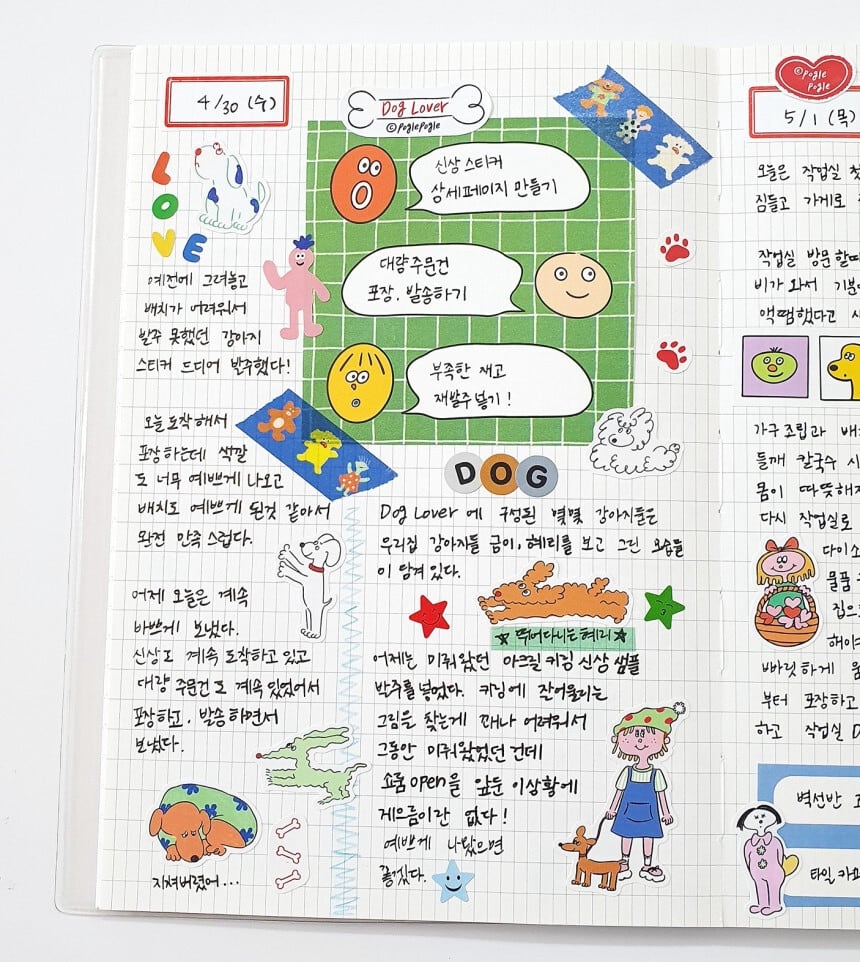 4/30 (수)
Dog Lover
©poglepogle
LOVE
신상 스티커
상세페이지 만들기
대량주문건
포장, 발송하기
부족한 재고
재발주 넣기!
예전에 그려놓고
배치가 어려워서
발주 못했던 강아지
스티커 드디어 발주했다!
오늘 도착해서
포장하는데 색깔
도 너무 예쁘게 나오고
배치도 예쁘게 된것 같아서
완전 만족스럽다.
어제 오늘은 계속
바쁘게 보냈다.
신상도 계속 도착하고 있고
대량 주문건도 계속 있었어서
포장하고, 발송하면서
보냈다.
지쳐버렸어...
DOG
Dog Lover 에 구성된 몇몇 강아지들은
우리집 강아지들 곰이, 혜리를 보고 그린 모습들
이 담겨 있다.
★ 뛰어다니는 혜리 ★
어제는 미뤄왔던 아크릴 키링 신상 샘플
발주를 넣었다. 키링에 잘어울리는
그림을 찾는게 꽤나 어려워서
그동안 미뤄왔었던 건데
쇼룸 open을 앞둔 이상황에
게으름이란 없다!
예쁘게 나왔으면
좋겠다.
©pogle
pogle
5/1 (목)
오늘은 작업실 첫
짐들고 가게로
작업실 방문할때
비가 와서 기분
액땜했다고
가구 조립과 배
들깨 칼국수 시
몸이 따뜻해
다시 작업실로
다이소
물품
집으
해야
빠릿하게 움
부터 포장하고
하고 작업실
벽선반
타일 카